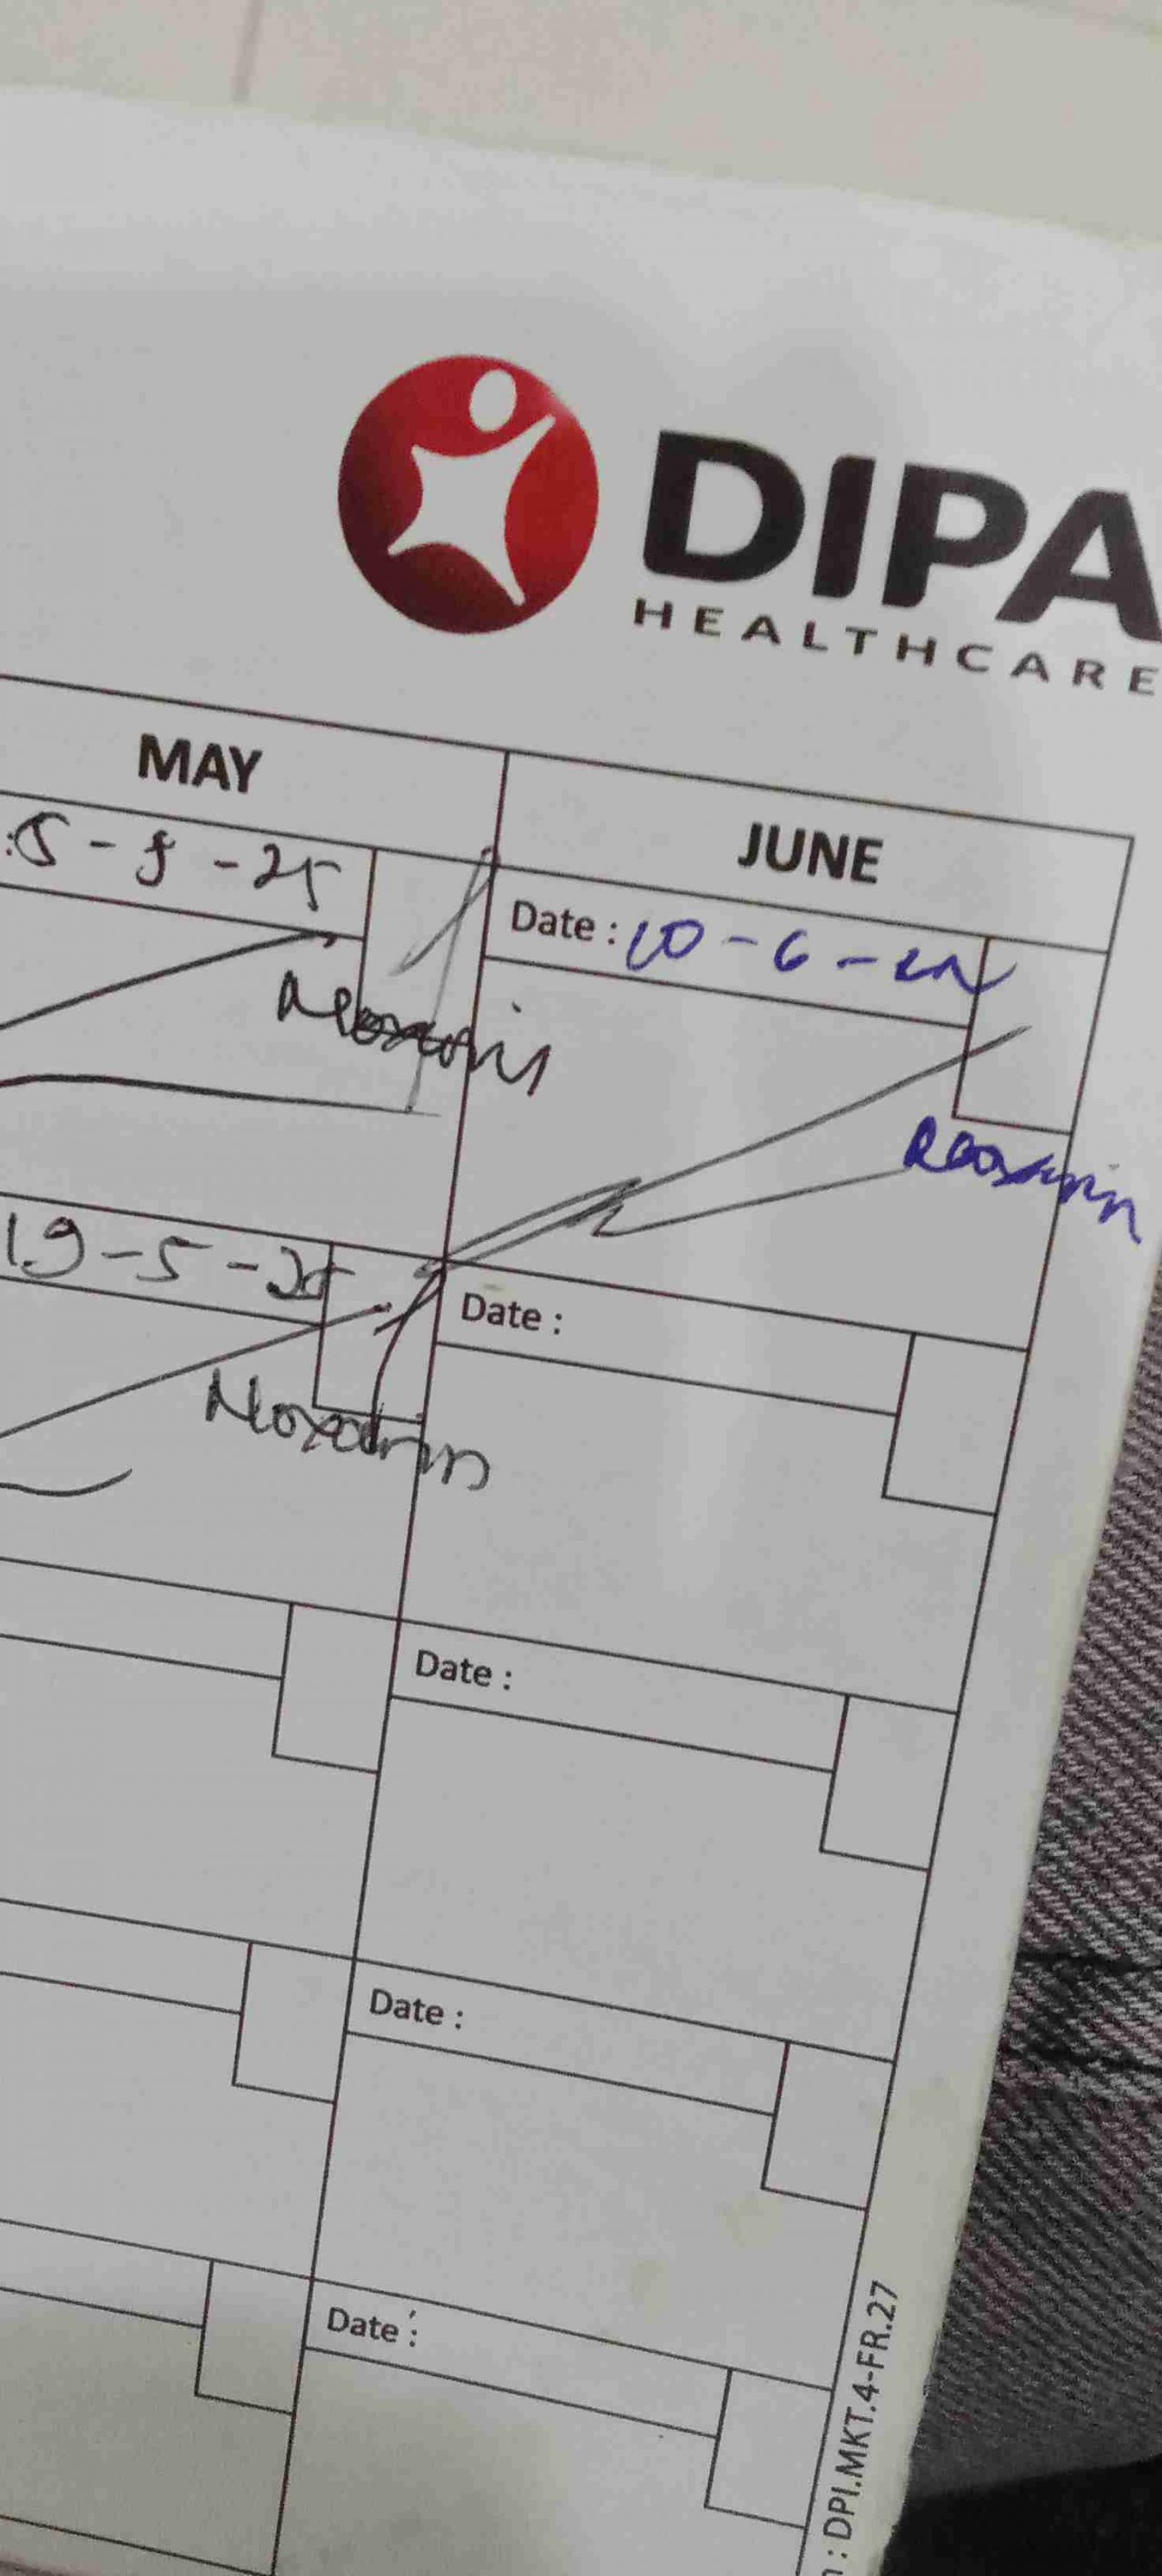 DIPA
HEALTHCARE
MAY
JUNE
: 5 - 5 - 25
Date : 10 - 6 -
19 - 5 - 25
Date :
Date :
Date :
Date :
: DPI.MKT.4-FR.27